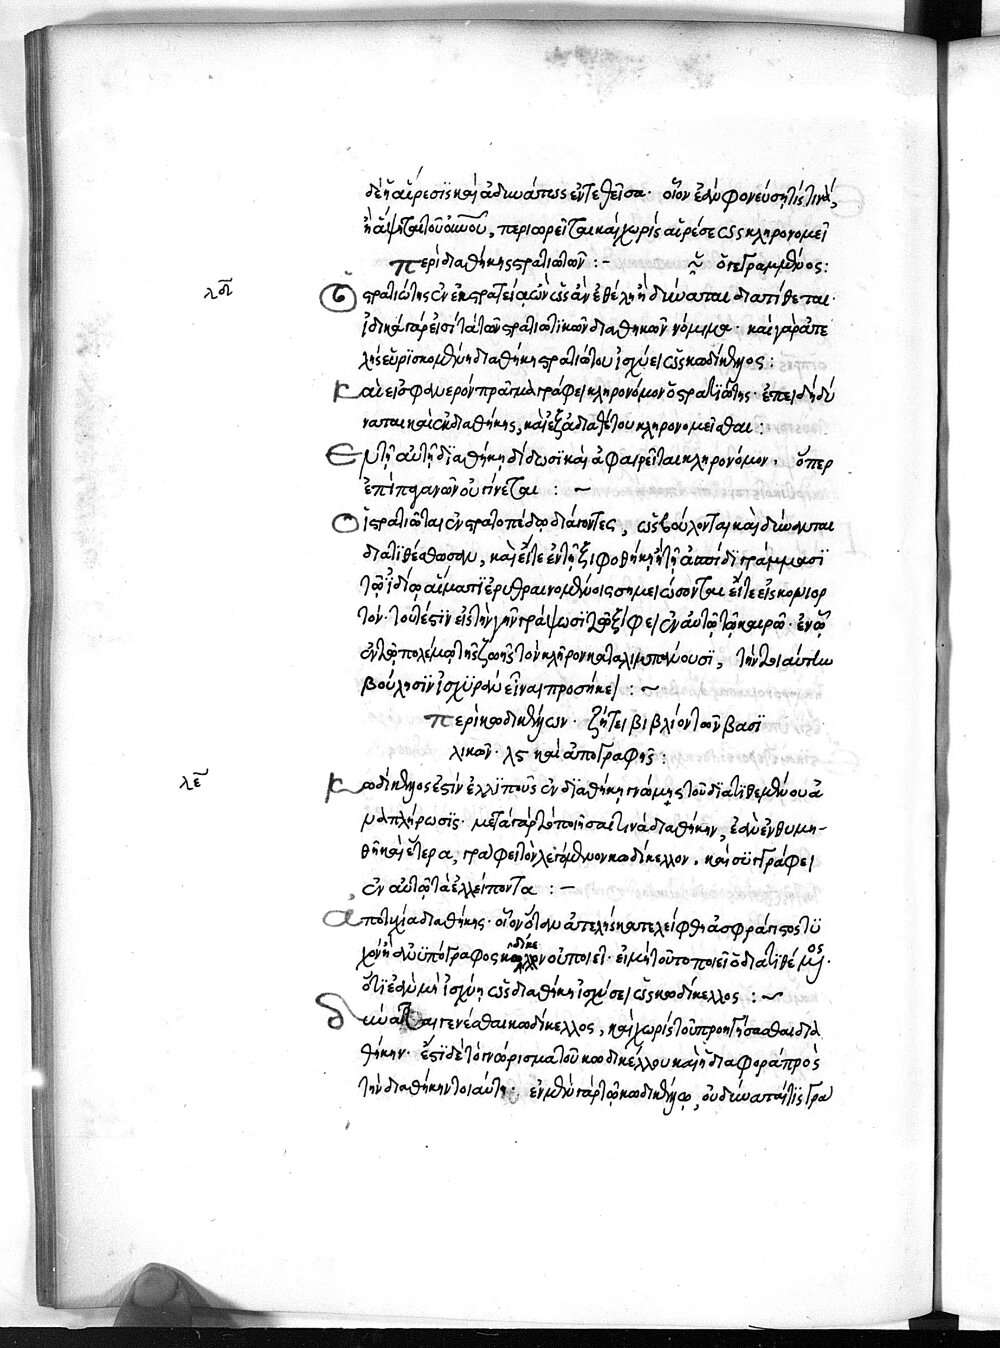 δὲ ἡ αἵρεσις καὶ ἀδυνάτως ἐντεθεῖσα· οἷον ἐὰν φονεύσῃ τίς τινά,
ἢ ἅψηται τοῦ οὐνοῦ, περιαιρεῖται καὶ χωρὶς αἱρέσεως κληρονομεῖ
περὶ διαθήκης στρατιωτῶν :- ὁ γεγραμμένος:
λδ
Ὁ στρατιώτης ἐν ἐκστρατείᾳ ὢν ὡς ἂν ἐθέλῃ ἢ δύναται διατίθεται·
ἰδικὰ γάρ εἰσι τὰ τῶν στρατιωτικῶν διαθηκῶν νόμιμα· καὶ γὰρ ἀτε
λὴς εὑρισκομένη διαθήκη στρατιώτου ἰσχύει ὡς κωδίκελλος:
Καὶ εἰς φανερὸν πρᾶγμα γράφει κληρονόμον ὁ στρατιώτης· ἐπειδὴ δύ
ναται καὶ ἐκ διαθήκης, καὶ ἐξ ἀδιαθέτου κληρονομεῖσθαι:
Ἐν τῇ αὐτῇ διαθήκῃ δίδωσι καὶ ἀφαιρεῖται κληρονόμον· ὅπερ
ἐπὶ παγανῶν οὐ γίνεται :~
Οἱ στρατιῶται ἐν στρατοπέδῳ διάγοντες, ὡς βούλονται καὶ δύνανται
διατιθέσθωσαν, καὶ εἴτε ἐν τῇ ξιφοθήκῃ ἢ τῇ ἀσπίδι γράμμασι
τῷ ἰδίῳ αἵματι ἐρυθραινομένοις σημειώσονται εἴτε εἰς κονιορ
τόν· τουτέστιν εἰς τὴν γῆν γράψωσι τῷ ξίφει ἐν αὐτῷ τῷ καιρῷ· ἐν ᾧ
ἐν τῷ πολέμῳ τῆς ζωῆς τὸν κλῆρον καταλιμπάνουσι, τὴν τοιαύτην
βούλησιν ἰσχυρὰν εἶναι προσήκει :~
περὶ κωδικέλλων· ζήτει βιβλίον τῶν βασι
λικῶν· λϛ καὶ ἀπογραφῆς:
λε
Κωδίκελλος ἐστὶν ἐλλιποῦς ἐν διαθήκῃ γνώμης τοῦ διατιθεμένου ἀ
ναπλήρωσις· μετὰ γὰρ τὸ ποιῆσαί τινα διαθήκην, ἐὰν ἐνθυμη-
θῇ καὶ ἕτερα, γράφει τὸν λεγόμενον κωδίκελλον· καὶ συγγράφει
ἐν αὐτῷ τὰ ἐλλείποντα :-
ἀποτυχία διαθήκης· οἷον ὅταν ἀτελὴς καταλειφθῇ ἀσφράγιστος τυ
χὸν ἢ ἀνυπόγραφος κωδίκελλον οὐ ποιεῖ· εἰ μὴ τοῦτο ποιεῖ ὁ διατιθέμενος·
ὅτι ἐὰν μὴ ἰσχύῃ ὡς διαθήκη ἰσχύσει ὡς κωδίκελλος :~
δύναται γενέσθαι κωδίκελλος, καὶ χωρὶς τοῦ προηγήσασθαι δια
θήκην· ἔστι δὲ τὸ γνώρισμα τοῦ κωδικέλλου καὶ ἡ διαφορὰ πρὸς
τὴν διαθήκην τοιαύτη· ἐν μὲν γὰρ τῷ κωδικέλλῳ, οὐ δύναταί τις γρά